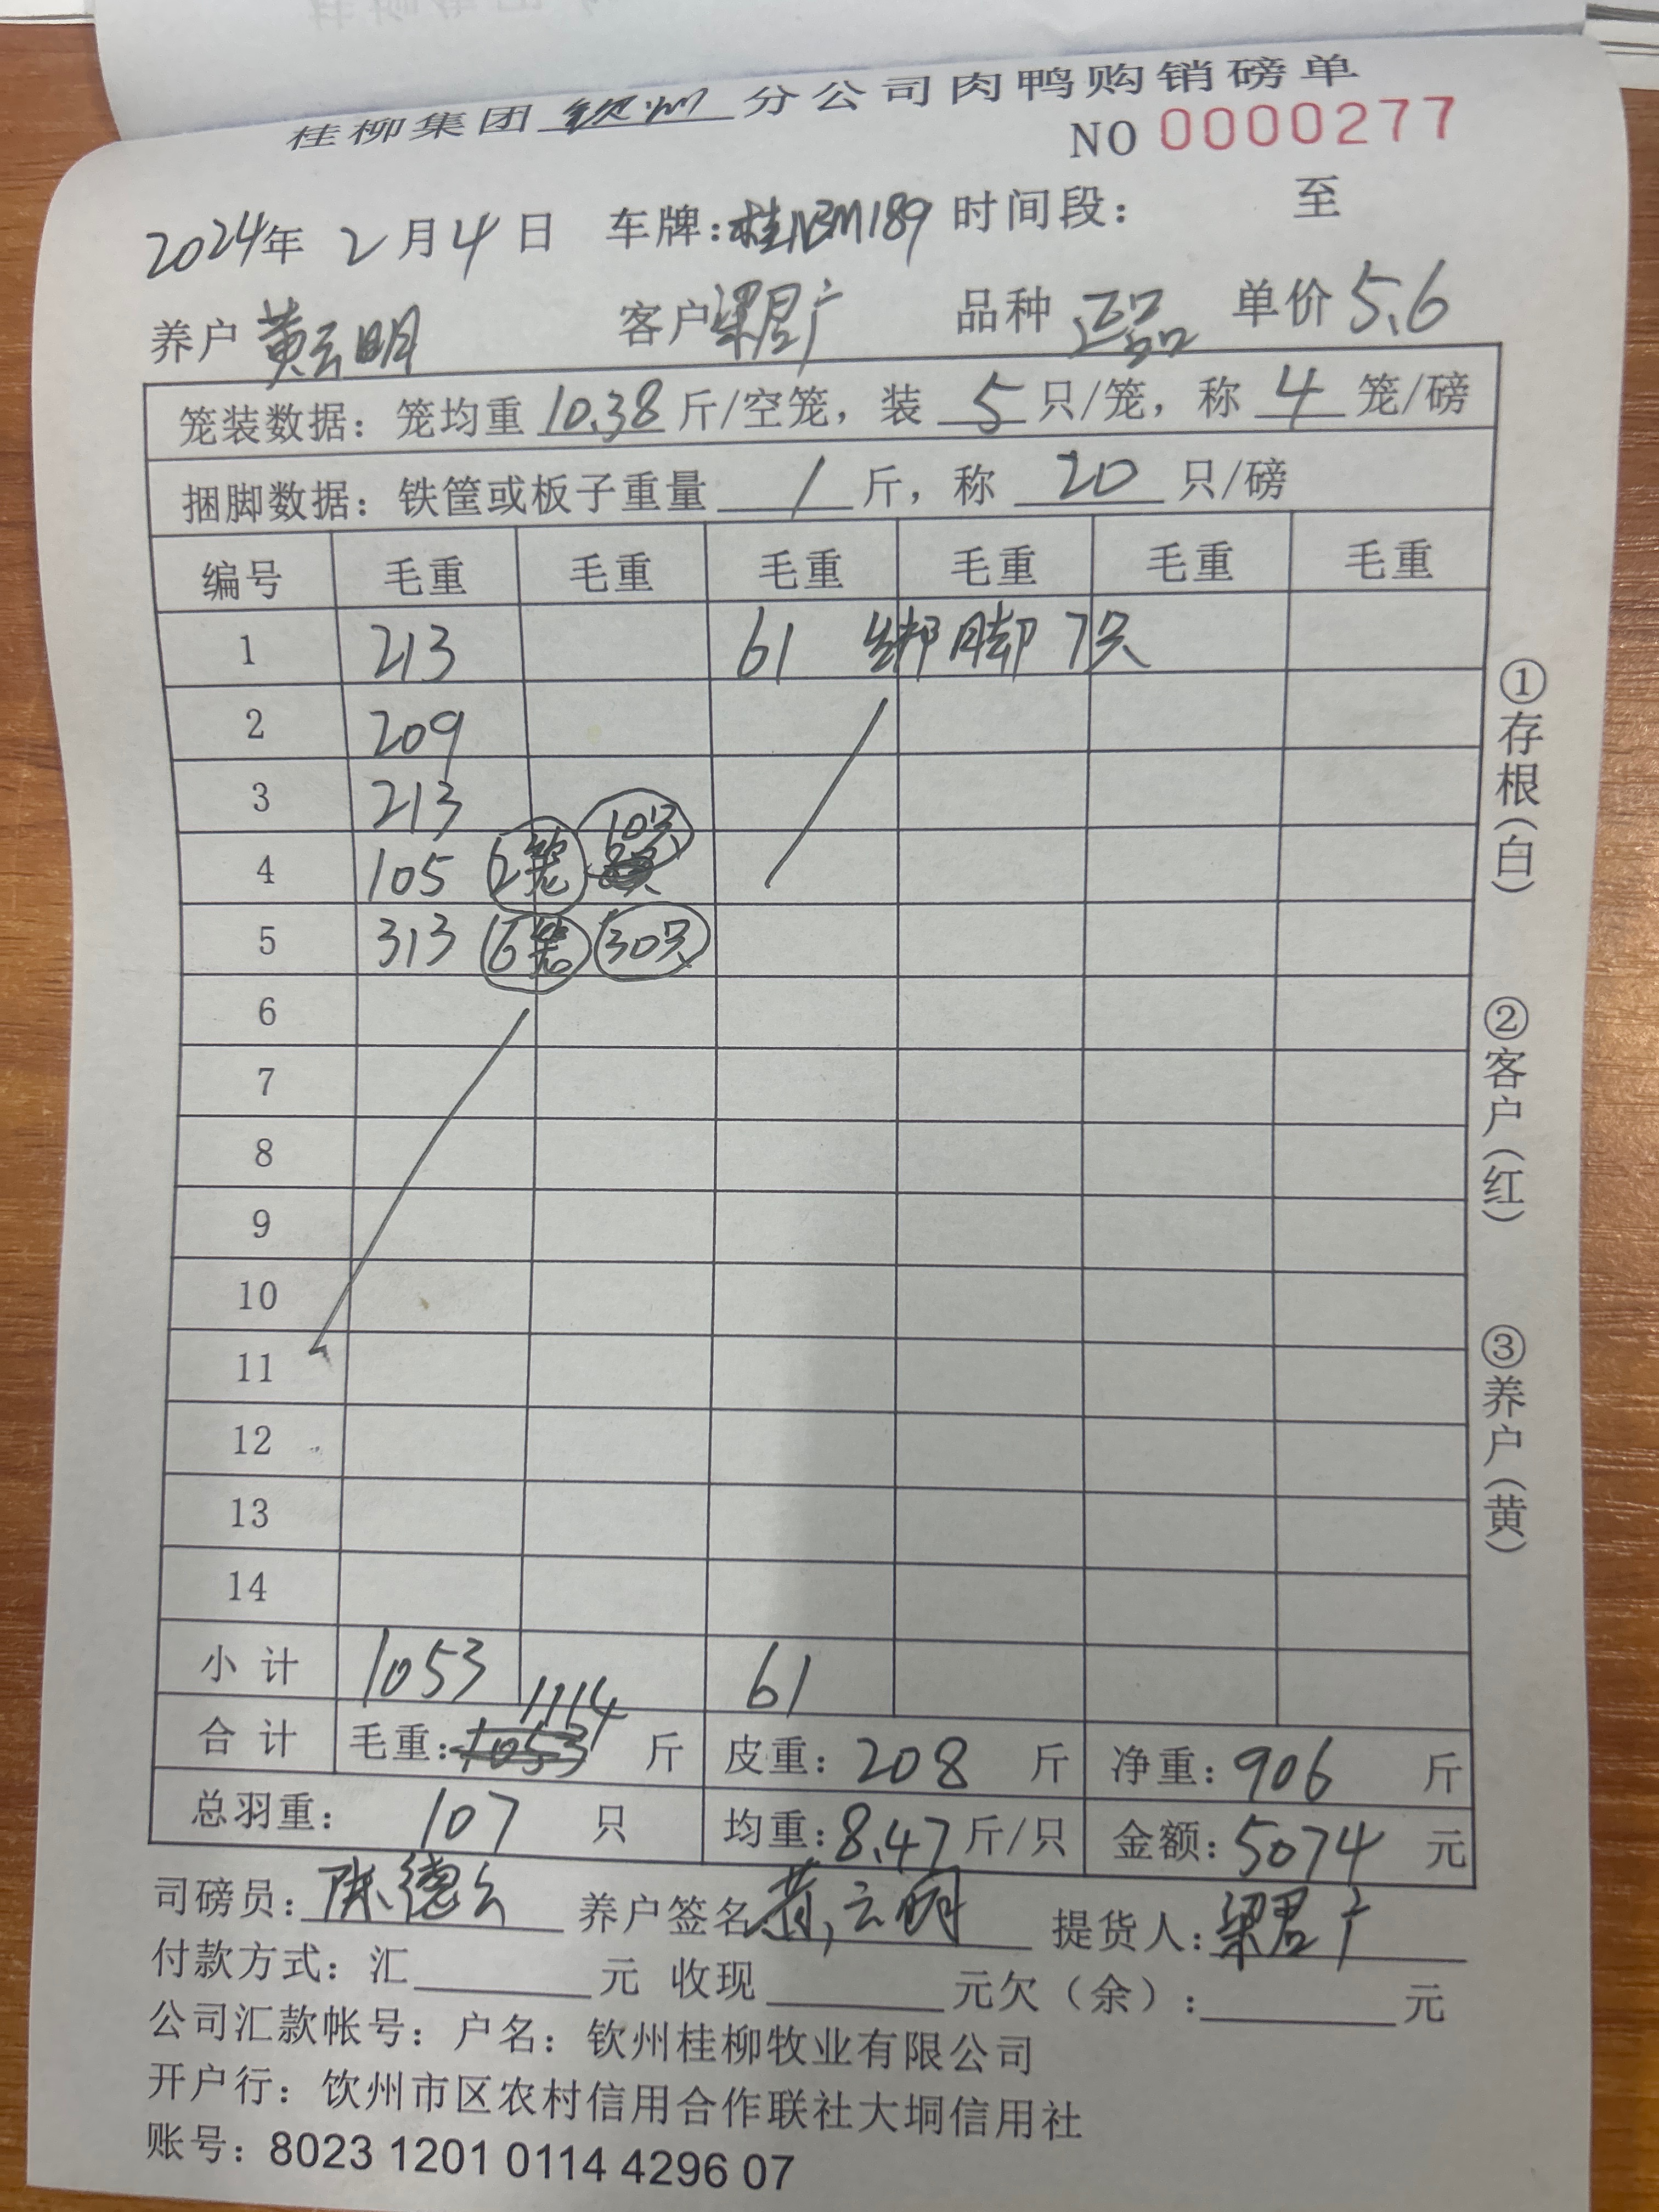 桂柳集团钦州分公司肉鸭购销磅单
NO 0000277
2024年 2月4日 车牌:桂NBM189 时间段: 至
养户 黄云明 客户 梁君广 品种 正品 单价 5.6
笼装数据:笼均重 10.38 斤/空笼,装 5 只/笼,称 4 笼/磅
捆脚数据:铁筐或板子重量 / 斤,称 20 只/磅
编号 毛重 毛重 毛重 毛重 毛重 毛重
1 213 61 绑脚 7只
2 209
3 213
4 105 2笼 10只
5 313 6笼 30只
6
7
8
9
10
11
12
13
14
小计 1053 61
合计 毛重:1053 1114 斤 皮重:208 斤 净重:906 斤
总羽重: 107 只 均重:8.47斤/只 金额:5074 元
司磅员:陈德云 养户签名 黄云明 提货人:梁君广
付款方式:汇 元 收现 元欠(余): 元
公司汇款帐号:户名:钦州桂柳牧业有限公司
开户行:饮州市区农村信用合作联社大垌信用社
账号:8023 1201 0114 4296 07
①存根(白)
②客户(红)
③养户(黄)